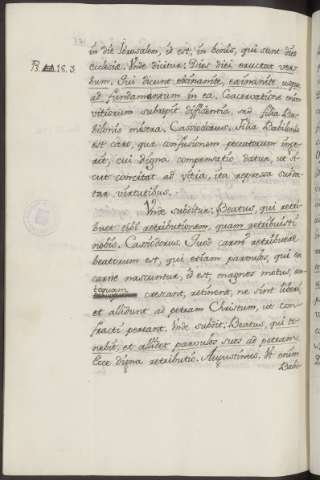 in die Jerusalem, id est, in bonis, qui sunt dies
ecclesiæ. Unde dicitur: Dies diei eructat ver-
Ps 18. 3
bum. Qui dicunt exinanite, exinanite usque
ad fundamentum in ea. Coacervatione enim
vitiorum subrepit diffidentia, nam filia Ba-
bilonis misera. Cassiodorus. Filia Babilonis
est caro, quæ confusionem peccatorum inge-
rit, cui digna compensatio datur, ut si-
cut concitat ad vitia, ita repressa
virtutibus.
Unde subditur: Beatus, qui retri-
buet tibi retributionem, quam retribuisti
nobis. Cassiodorus. Quod carni retribuere
beatorum est, qui etiam parvulos, qui ex
carne nascuntur, id est, magnos motus, an-
tequam crescant, retinent, ne sint liberi
et allidunt ad petram Christum, ut con-
fracti pereant. Unde subdit: Beatus, qui te-
nebit, et allidet parvulos suos ad petram.
Ecce digna retributio. Augustinus. Ut enim
Babi-